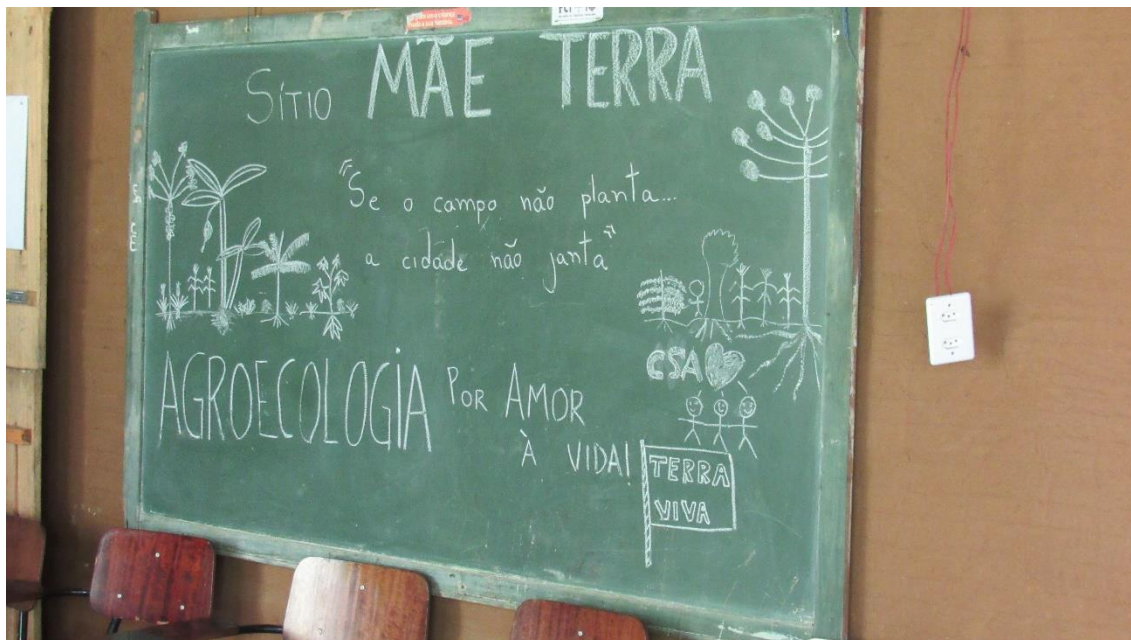 SÍTIO MÃE TERRA
"Se o campo não planta...
a cidade não janta"
CSA
AGROECOLOGIA POR AMOR
À VIDA!
TERRA
VIVA